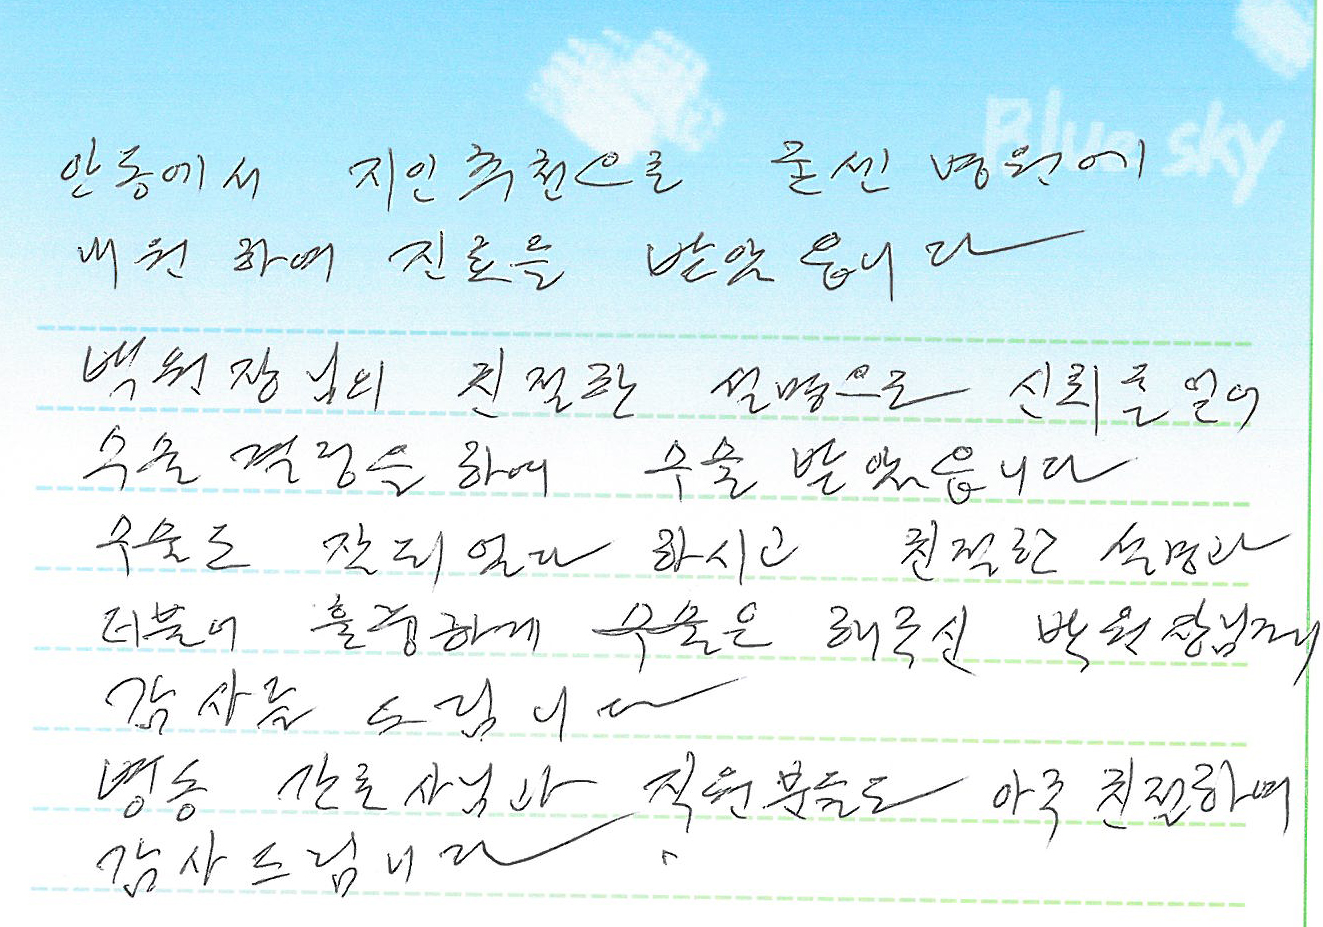 Blue sky
안동에서 지인추천으로 굳센 병원에
내원 하여 진료을 받았읍니다
백원장님의 친절한 설명으로 신뢰를 얻어
수술 결정을 하여 수술 받았읍니다
수술도 잘되었다 하시고 친절한 설명과
더불어 훌륭하게 수술은 해주신 박원장님께
감사를 드립니다
병동 간호사님과 직원분들도 아주 친절하여
감사드립니다